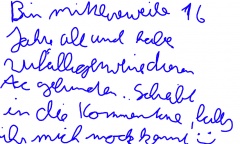 Bin mittlerweile 16
Jahre alt und habe
zufälligerweise diesen
Acc gefunden. Schreibt
in die Kommentare, falls
ihr mich noch kennt :)